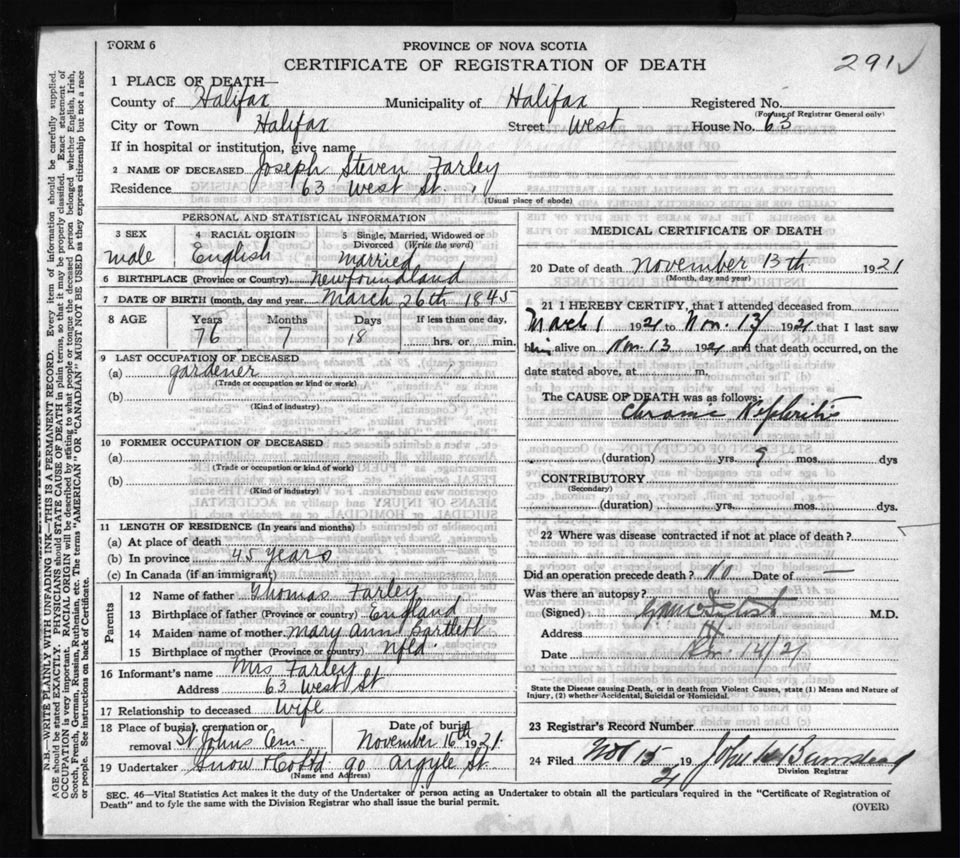 FORM 6
PROVINCE OF NOVA SCOTIA
CERTIFICATE OF REGISTRATION OF DEATH
291
1 PLACE OF DEATH—
County of Halifax Municipality of Halifax Registered No.
(For use of Registrar General only)
City or Town Halifax Street West House No. 63
If in hospital or institution, give name
2 NAME OF DECEASED Joseph Steven Farley
Residence 63 West St.
(Usual place of abode)
PERSONAL AND STATISTICAL INFORMATION
3 SEX male
4 RACIAL ORIGIN English
5 Single, Married, Widowed or Divorced (Write the word) married
6 BIRTHPLACE (Province or Country) Newfoundland
7 DATE OF BIRTH (month, day and year) March 26th 1845
8 AGE Years 76 Months 7 Days 18 If less than one day, hrs. or min.
9 LAST OCCUPATION OF DECEASED
(a) gardener
(Trade or occupation or kind or work)
(b)
(Kind of industry)
10 FORMER OCCUPATION OF DECEASED
(a)
(Trade or occupation or kind of work)
(b)
(Kind of industry)
11 LENGTH OF RESIDENCE (In years and months)
(a) At place of death
(b) In province 45 years
(c) In Canada (if an immigrant)
Parents
12 Name of father Thomas Farley
13 Birthplace of father (Province or country) England
14 Maiden name of mother Mary Ann Bartlett
15 Birthplace of mother (Province or country) Nfld.
16 Informant's name Mrs Farley
Address 63 West St
17 Relationship to deceased Wife
18 Place of burial, cremation or removal St Johns Cem. Date of burial November 16th 1921
19 Undertaker Snow & Co Ltd 90 Argyle St.
(Name and Address)
MEDICAL CERTIFICATE OF DEATH
20 Date of death November 13th 1921
(Month, day and year)
21 I HEREBY CERTIFY, that I attended deceased from
March 1 1921 to Nov. 13 1921 that I last saw
him alive on Nov. 13 1921 and that death occurred, on the
date stated above, at m.
The CAUSE OF DEATH was as follows:
Chronic Nephritis
(duration) yrs. 9 mos. dys
CONTRIBUTORY
(Secondary)
(duration) yrs. mos. dys.
22 Where was disease contracted if not at place of death?
Did an operation precede death? No Date of —
Was there an autopsy?
(Signed) M.D.
Address
Date Nov. 14/21
State the Disease causing Death, or in death from Violent Causes, state (1) Means and Nature of
Injury, (2) whether Accidental, Suicidal or Homicidal.
23 Registrar's Record Number
24 Filed Nov 15 1921 John
Division Registrar
SEC. 46—Vital Statistics Act makes it the duty of the Undertaker or person acting as Undertaker to obtain all the particulars required in the "Certificate of Registration of
Death" and to fyle the same with the Division Registrar who shall issue the burial permit.
(OVER)
N.B.—WRITE PLAINLY WITH UNFADING INK—THIS IS A PERMANENT RECORD. Every item of information should be carefully supplied.
AGE should be stated EXACTLY. PHYSICIANS should STATE CAUSE OF DEATH in plain terms, so that it may be properly classified. Exact statement of
OCCUPATION is very important. RACIAL ORIGIN will be described by stating to what people or tongue the deceased person belonged whether English, Irish,
Scotch, French, German, Russian, Ruthenian, etc. The terms "AMERICAN" OR "CANADIAN" MUST NOT BE USED as they express citizenship but not a race
or people. See instructions on back of Certificate.